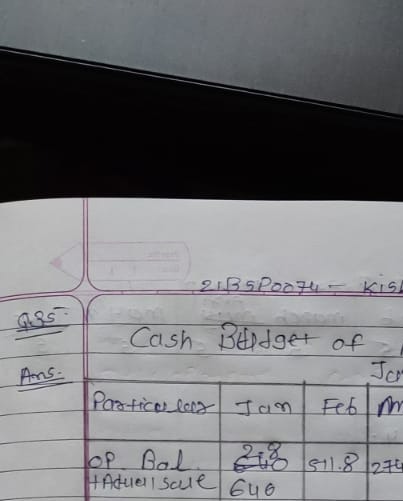 21BSP0074 - Kish
Q.35.
Cash Budget of
Ans.
Jan
Particulars Jan Feb M
28
OP. Bal. 511.8 274
+ Actual Sale 640